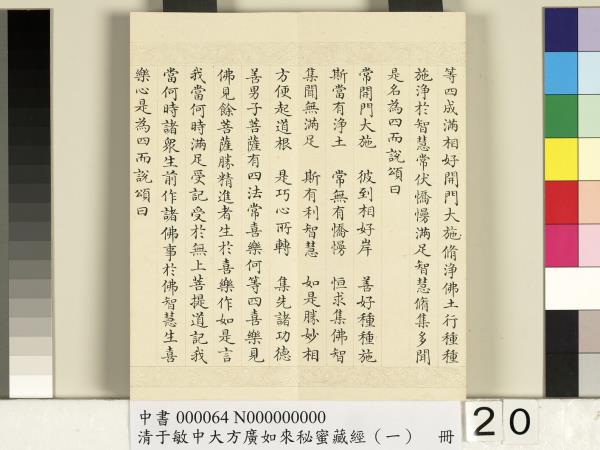 等四成滿相好開門大施脩淨佛土行種種
施淨於智慧常伏憍慢滿足智慧脩集多聞
是名為四而說頌曰
常開門大施　彼到相好岸　善好種種施
斯當有淨土　常無有憍慢　恒求集佛智
集聞無滿足　斯有利智慧　如是勝妙相
方便起道根　是巧心所轉　集先諸功德
善男子菩薩有四法常喜樂何等四喜樂見
佛見餘菩薩勝精進者生於喜樂作如是言
我當何時滿足受記受於無上菩提道記我
當何時諸衆生前作諸佛事於佛智慧生喜
樂心是為四而說頌曰
中書 000064 N000000000
清于敏中大方廣如來秘蜜藏經（一）　冊
20